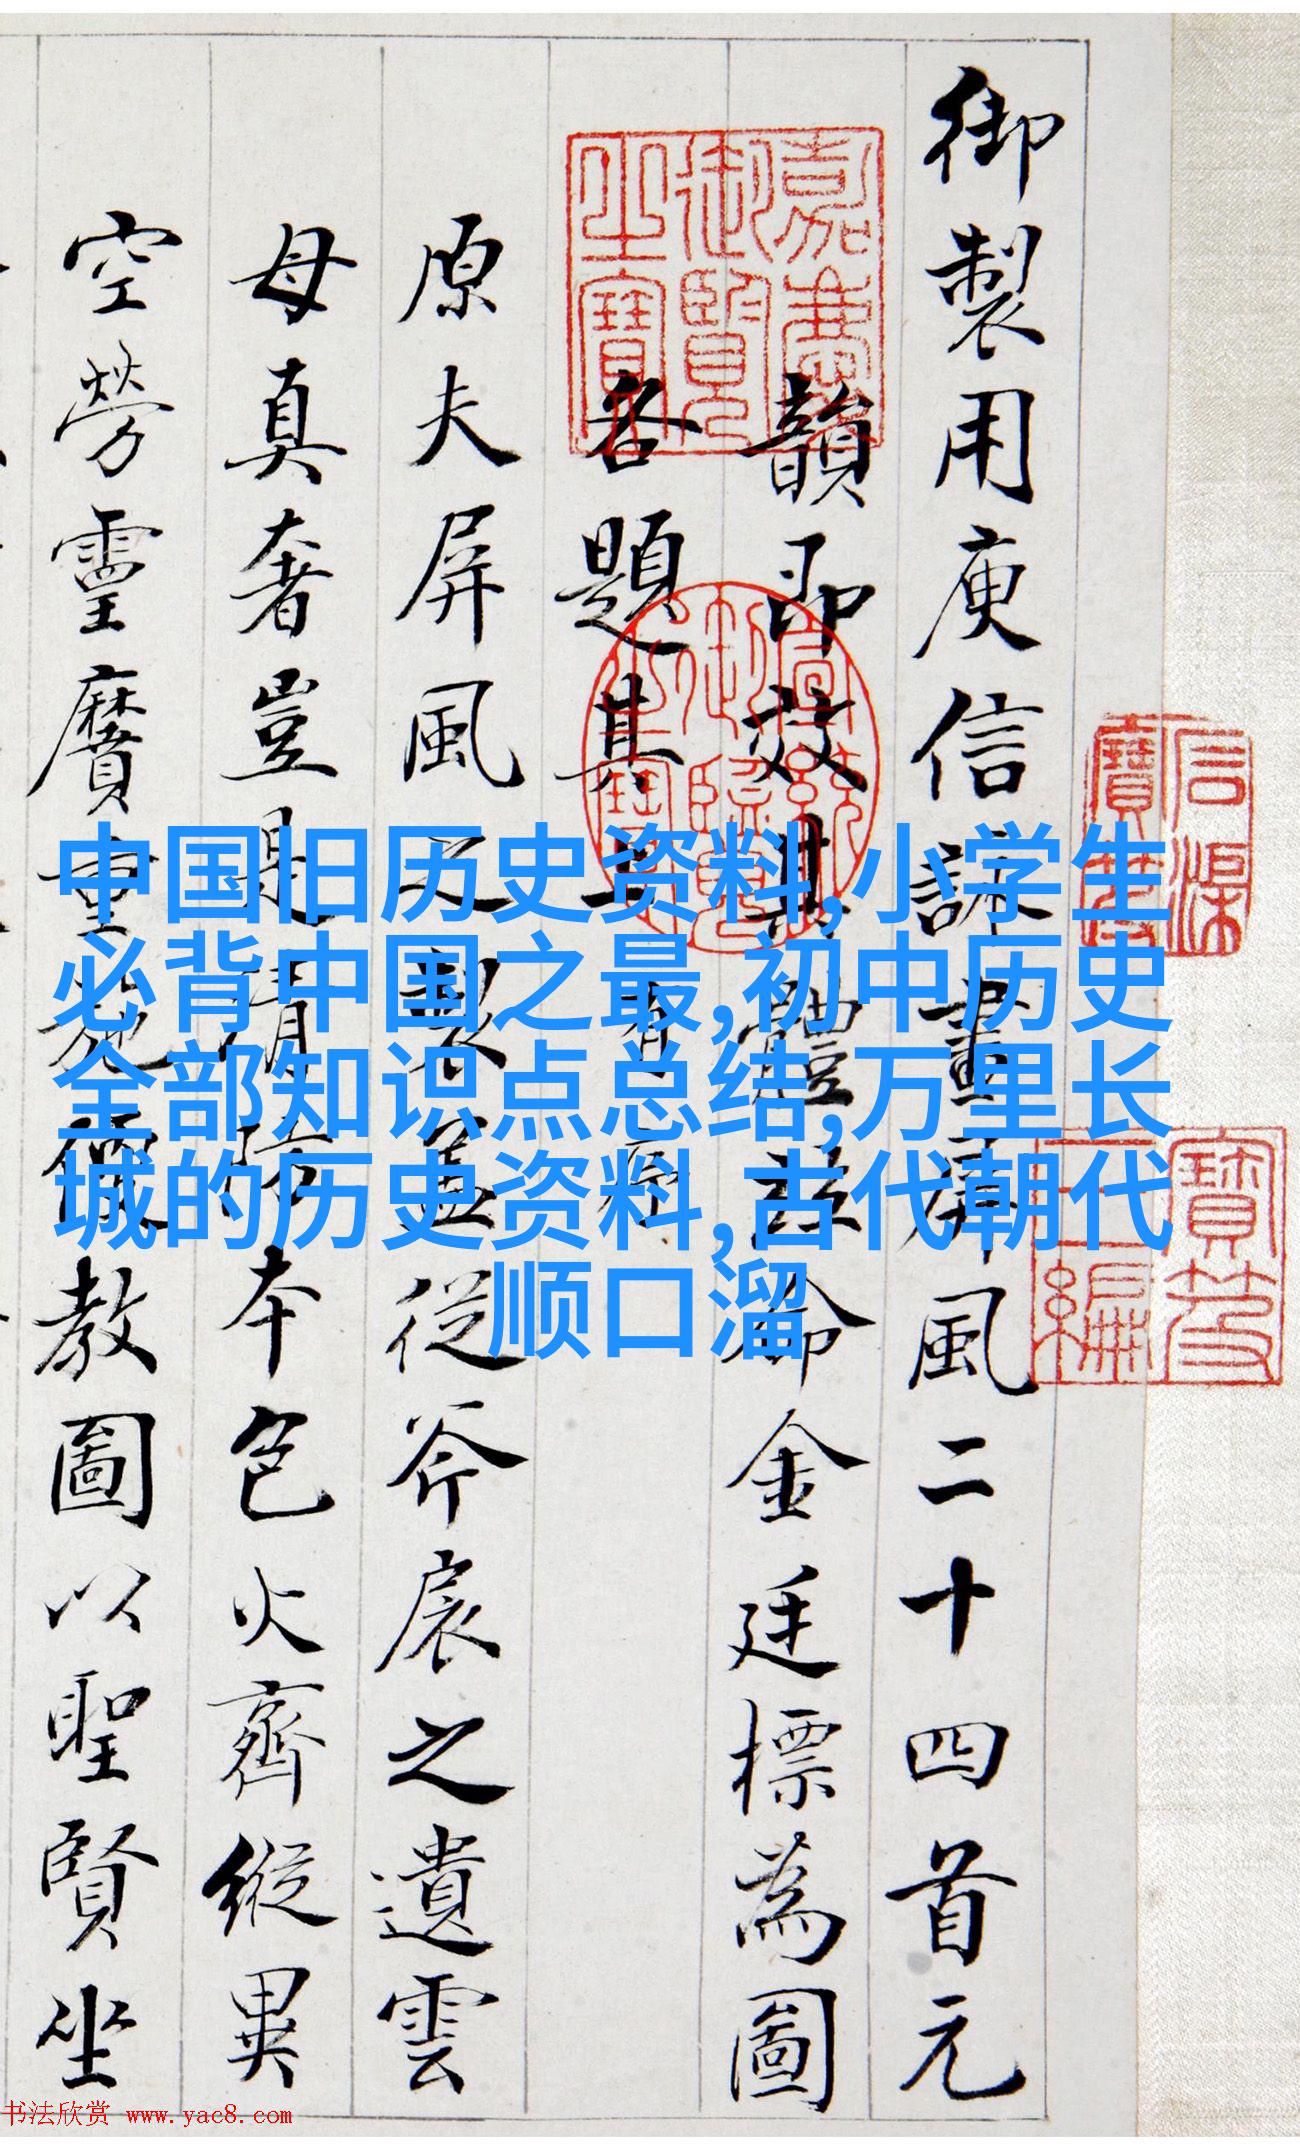 御製用庾信詠畫屏風二十四首元
韻即效其體並命金廷標為圖
各題其上 有序
原夫屏風製蓋從斧扆之遺雲
母真奢豈是清防本色火齊縱異
空勞重施儼教圖以聖賢坐
嘉慶御覽之寶
宣統御覽之寶
石渠寶笈
寶笈三編
中国旧历史资料,小学生
必背中国之最,初中历史
全部知识点总结,万里长
城的历史资料,古代朝代
顺口溜
书法欣赏 www.yac8.com